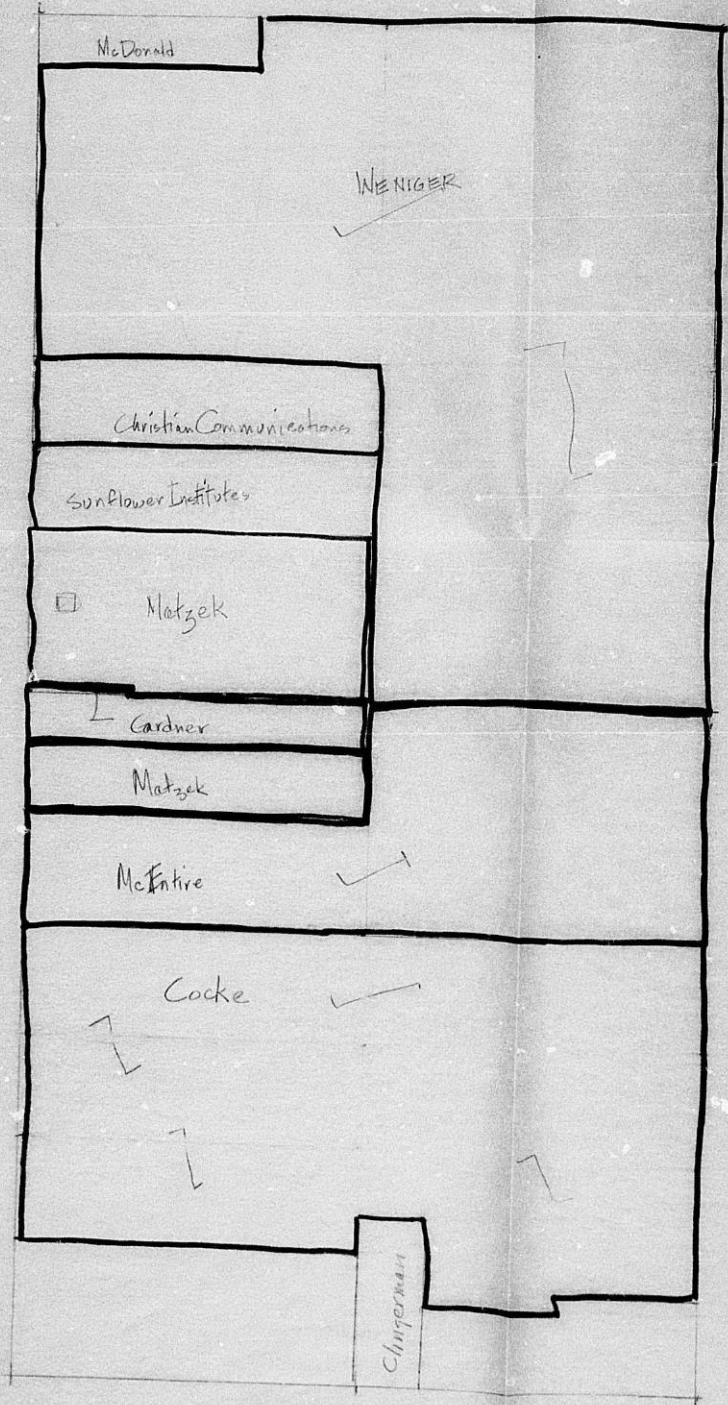 McDonald
WENIGER
Christian Communications
Sunflower Institutes
Matzek
Gardner
Matzek
McEntire
Cocke
Clingerman